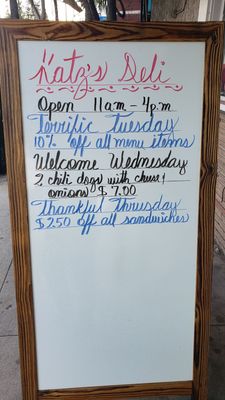 Katz's Deli
Open 11am - 4p.m
Terrific Tuesday
10% off all menu items
Welcome Wednesday
2 chili dogs with cheese &
onions $7.00
Thankful Thursday
$2.50 off all sandwiches